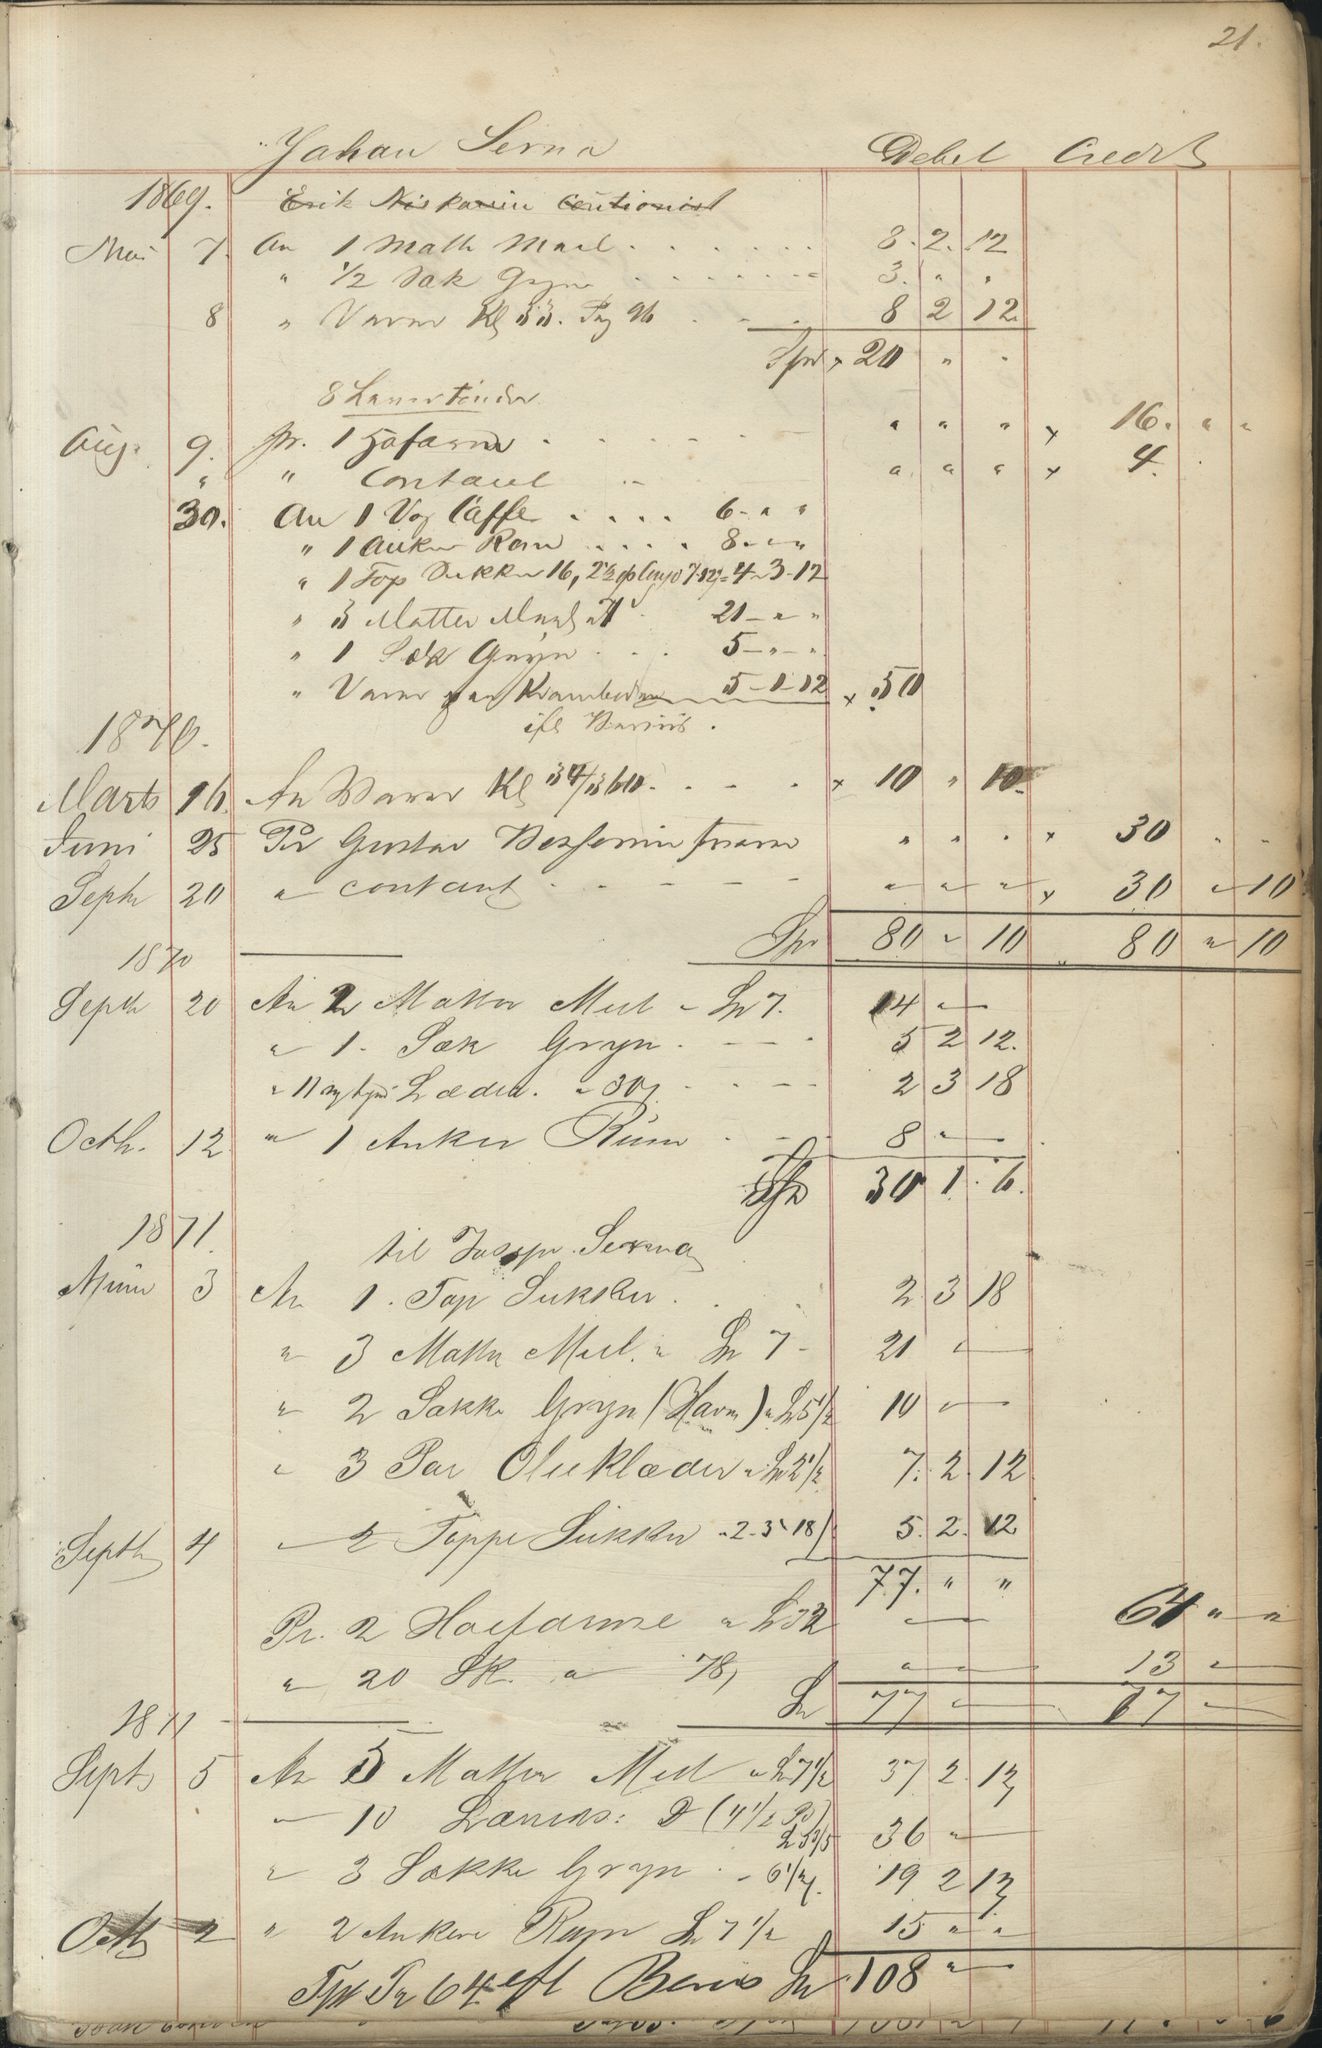 21.
Johan Serna Debet Credit
1869. Erik Niskanin Cautionist
Mai 7. An 1 Matt Meel 8. 2. 12
" 1/2 Sæk Gryn 3. " "
8 " Varer Kl 33. Pag 96 8 2 12
Spd x 20 " "
8 Lanertønder
Aug. 9. pr. 1 " " " x 16. " "
" " Contant " " " x 4.
30. An 1 Vog Caffe 6 - " "
" 1 Anker Rom 8 - " "
" 1 Top Sukker 16, 4 - 3 - 12
" 3 Matter Meel a 7 21 - " "
" 1 Sæk Gryn 5 - " - "
" Varer paa Kramboden 5 - 1 - 12 x 50
1870.
Marts 16. An Varer Kl 34/360. x 10 " 10
Juni 25 Pr Gustav " " " x 30 " "
Septr 20 " contant " " " x 30 " 10
Spr 80 " 10 80 " 10
1870
Septr 20 An 2 Matter Meel " Sp 7. 14 "
" 1. Sæk Gryn 5 2 12.
" 11 Læder. " 30 2 3 18
Octb. 12 " 1 Anker Rum 8 "
Spd 30 1. 6.
1871.
til Serna
3 An 1. Top Sukker 2 3 18
" 3 Matter Meel. " Sp 7 - 21 "
" 2 Sække Gryn (Havre) " Sp 5 1/2 10 "
" 3 Par Olieklæder " Sp 2 1/2 7. 2. 12
Septb 4 " 2 Toppe Sukker " 2 - 3 - 18 5. 2. 12
77. " "
Pr. 2 " Sp 32 " 64 " "
" 20 Sk. " 78, " " 13 "
Sp 77 " 77 "
1871
Septb 5 An 5 Matter Meel " Sp 7 1/2 37 2. 12
" 10 (4 1/2 36 "
" 3 Sække Gryn " 6 1/2 19 2 12
Octb 2 " 2 Ankere Rom Sp 7 1/2 15 " "
64 eft Bevis Sp 108 "